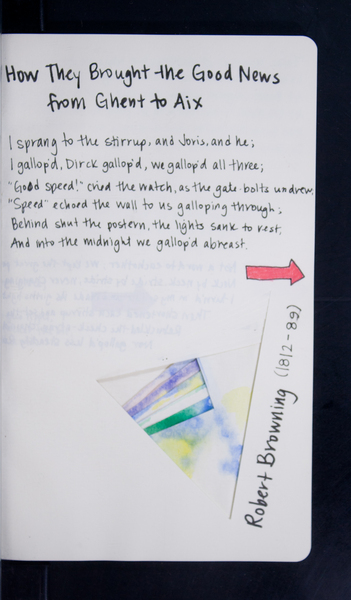 How They Brought the Good News
from Ghent to Aix
I sprang to the stirrup, and Joris, and he;
I gallop'd, Dirck gallop'd, we gallop'd all three;
"Good speed!" cried the watch, as the gate-bolts undrew;
"Speed" echoed the wall to us galloping through;
Behind shut the postern, the lights sank to rest,
And into the midnight we gallop'd abreast.
Robert Browning (1812-89)